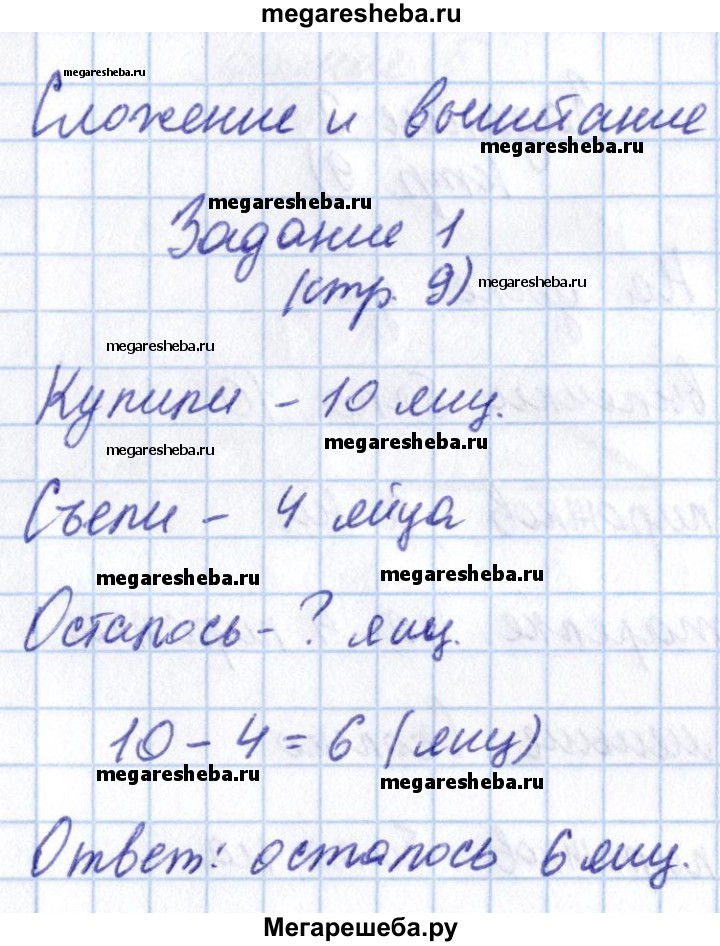 megaresheba.ru
megaresheba.ru
Сложение и вычитание
megaresheba.ru
megaresheba.ru
Задание 1
(стр. 9)
megaresheba.ru
megaresheba.ru
Купили - 10 яиц.
megaresheba.ru
megaresheba.ru
Съели - 4 яйца
megaresheba.ru
megaresheba.ru
Осталось - ? яиц.
10 - 4 = 6 (яиц)
megaresheba.ru
megaresheba.ru
Ответ: осталось 6 яиц.
Мегарешеба.ру